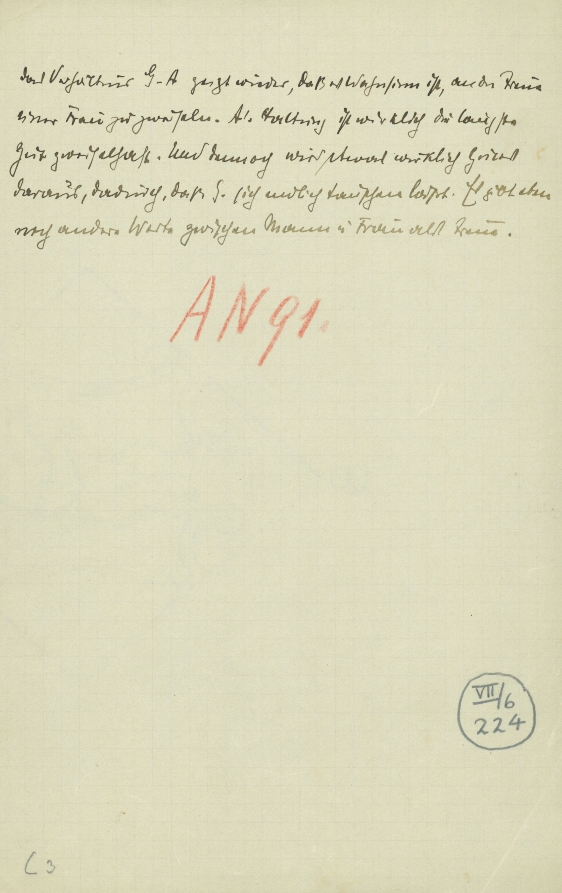 Das Verhältnis G-A zeigt wieder, daß es Wahnsinn ist, an der Treue
einer Frau zu zweifeln. A's Haltung ist wirklich die längste
Zeit zweifelhaft. Und dennoch wird etwas wirklich
daraus, dadurch, daß G. sich endlich täuschen läßt. Es gibt eben
noch andere Werte zwischen Mann u Frau als Treue.
AN 91.
VII/6
224
3